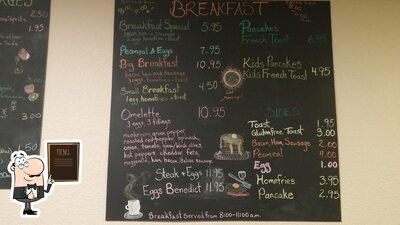 BREAKFAST
Breakfast Special 5.95
Peameal & Eggs 7.95
Big Breakfast 10.95
bacon, ham and sausage
3 eggs, homefries + toast
Small Breakfast 4.50
1 egg, homefries + toast
Omelette 10.95
3 eggs 3 fillings
mushroom, green pepper,
roasted red pepper, spinach,
onion, tomato, ham, black olives,
hot peppers, cheddar, feta,
mozzarella, ham, bacon, Italian sausage.
Steak & Eggs 11.95
Eggs Benedict 11.95
Breakfast Served from 8:00-11:00 a.m.
Pancakes
French Toast 6.95
Kids Pancakes
Kids French Toast 4.95
SIDES
Toast 1.95
Gluten free Toast 3.00
Bacon, Ham, Sausage 2.00
Peameal 4.00
Egg 1.00
Homefries 3.95
Pancake 2.95
2.50
MENU